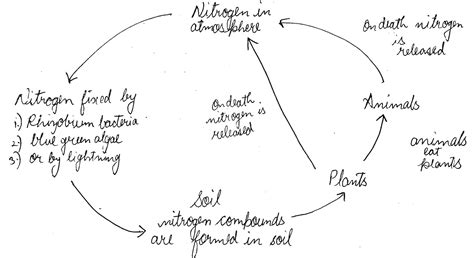 Nitrogen in
atmosphere
on death nitrogen
is
released
Nitrogen fixed by
1) Rhizobium bacteria
2) blue green algae
3) or by lightning
on death
nitrogen is
released
Animals
animals
eat
plants
Plants
Soil
nitrogen compounds
are formed in soil